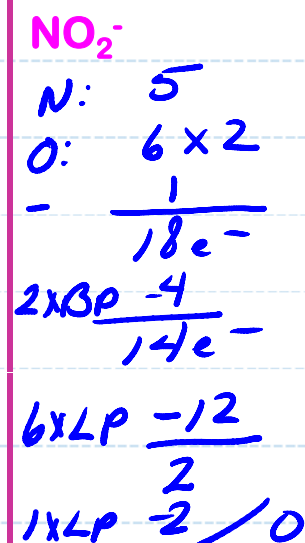 NO₂⁻
N: 5
O: 6 x 2
- 1
18e⁻
2xBP -4
14e⁻
6xLP -12
2
1xLP -2 / 0